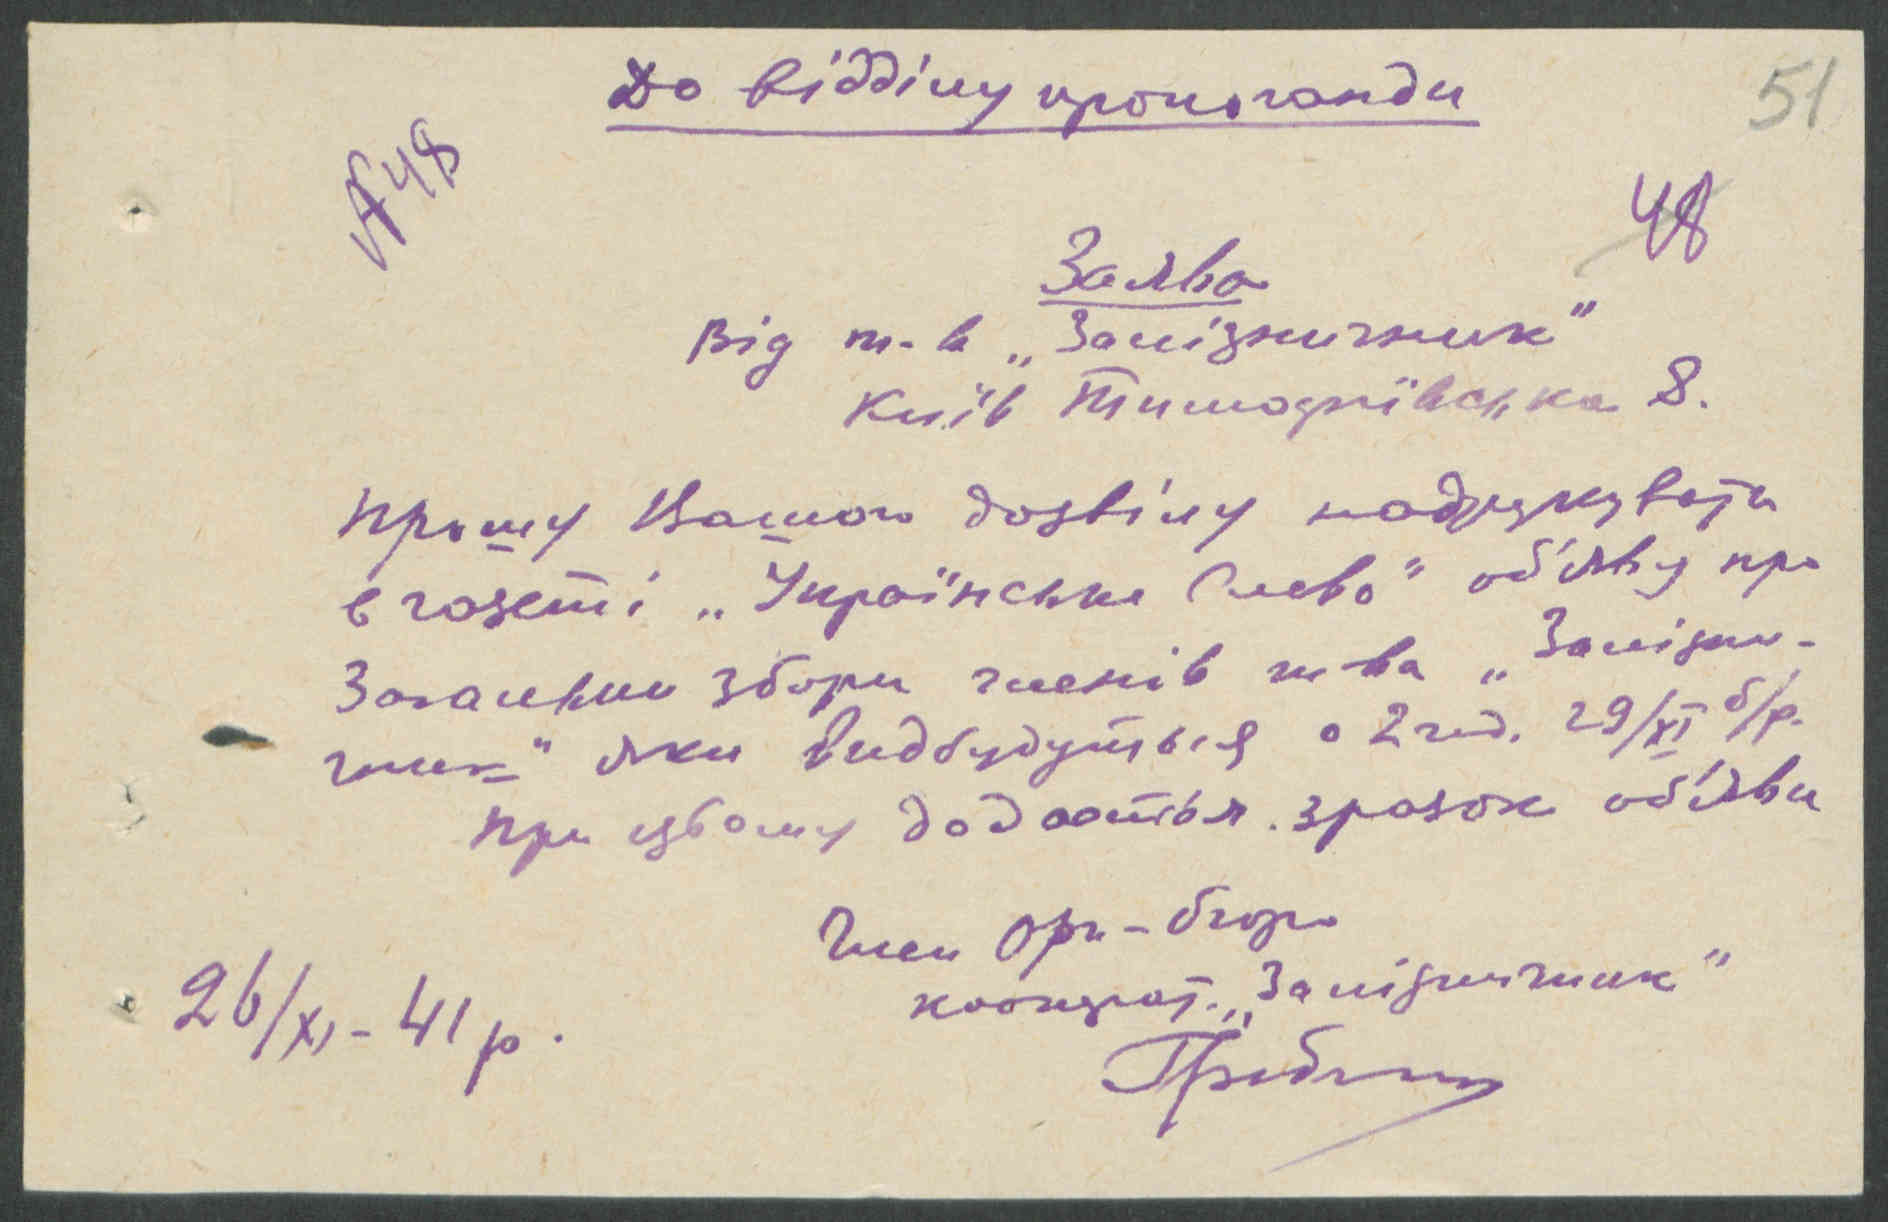 До відділу пропоганди
51
№ 48
48
Заява
Від т-ва „Залізничник"
Київ Тимофіївська 8.
Прошу Вашого дозвілу надрукувати
в газеті „Українське Слово" об'яву про
Загальни збори членів т-ва „Залізни-
чник" яки видбудуться о 2 год. 29/XI б/р.
При цьому додається зразок об'яви
Член Орг-бюро
кооперат. „Залізничник"
26/XI-41 р.